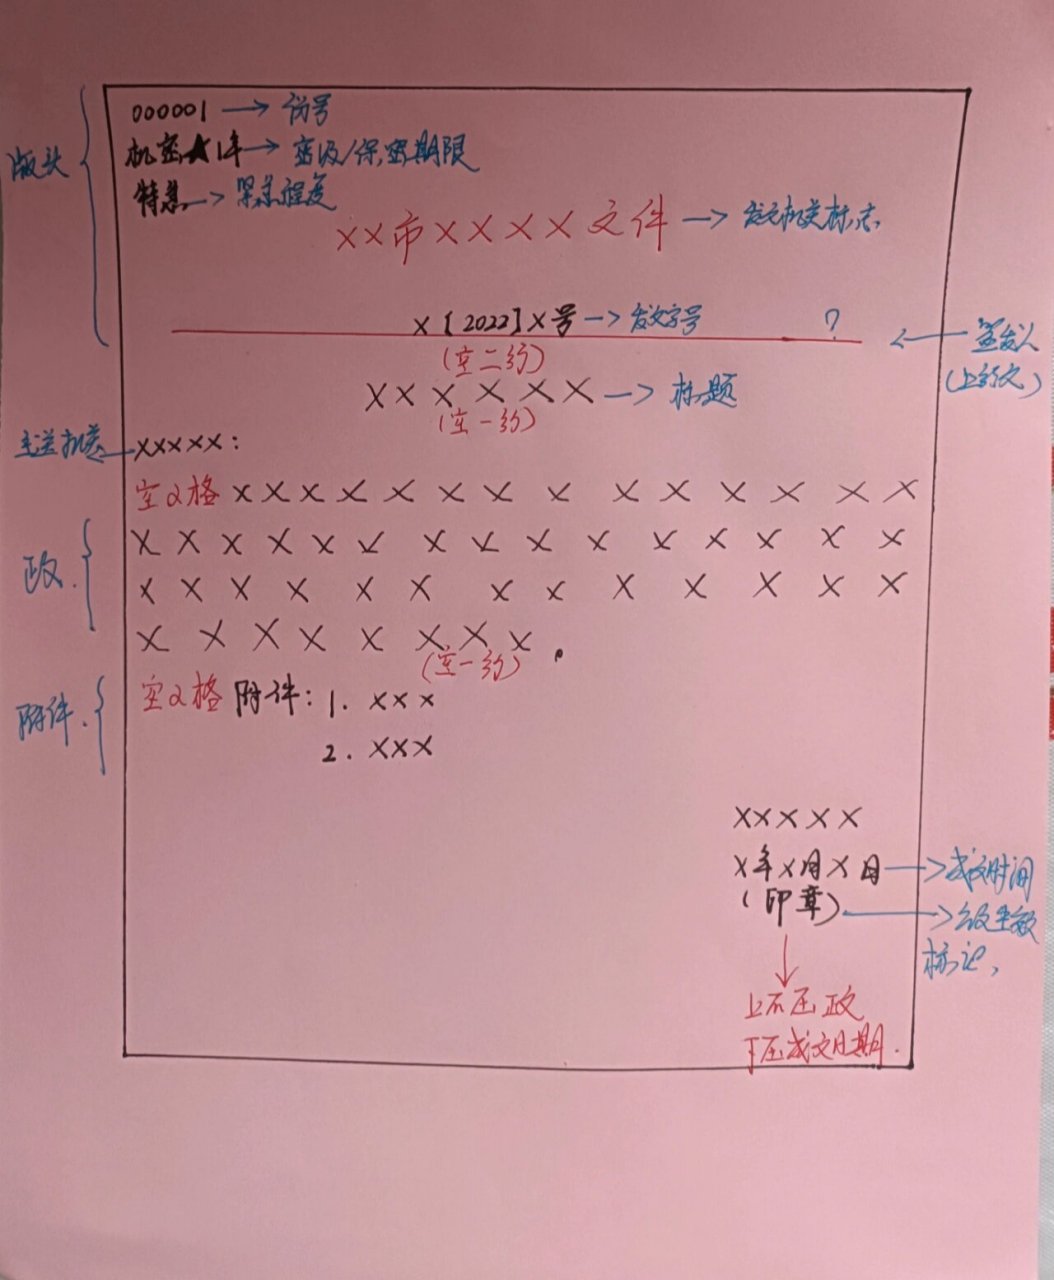 000001 → 份号
版头
机密★1年 → 密级/保密期限
特急 → 紧急程度
XX市XXXX文件 → 发文机关标志
X [2022] X号 → 发文字号 ?
← 签发人
(上行文)
(空二行)
XXXXXX → 标题
(空一行)
主送机关 ← XXXXX:
空2格 XXXXXXXXXXXXXX
正文.
XXXXXXXXXXXXXXX
XXXXXXXXXXXXX
XXXXXXXX。
(空一行)
附件.
空2格 附件: 1. XXX
2. XXX
XXXXX
X年X月X日 → 成文时间
(印章) → 公文生效
标记、
↓
上不压正文
下压成文日期.